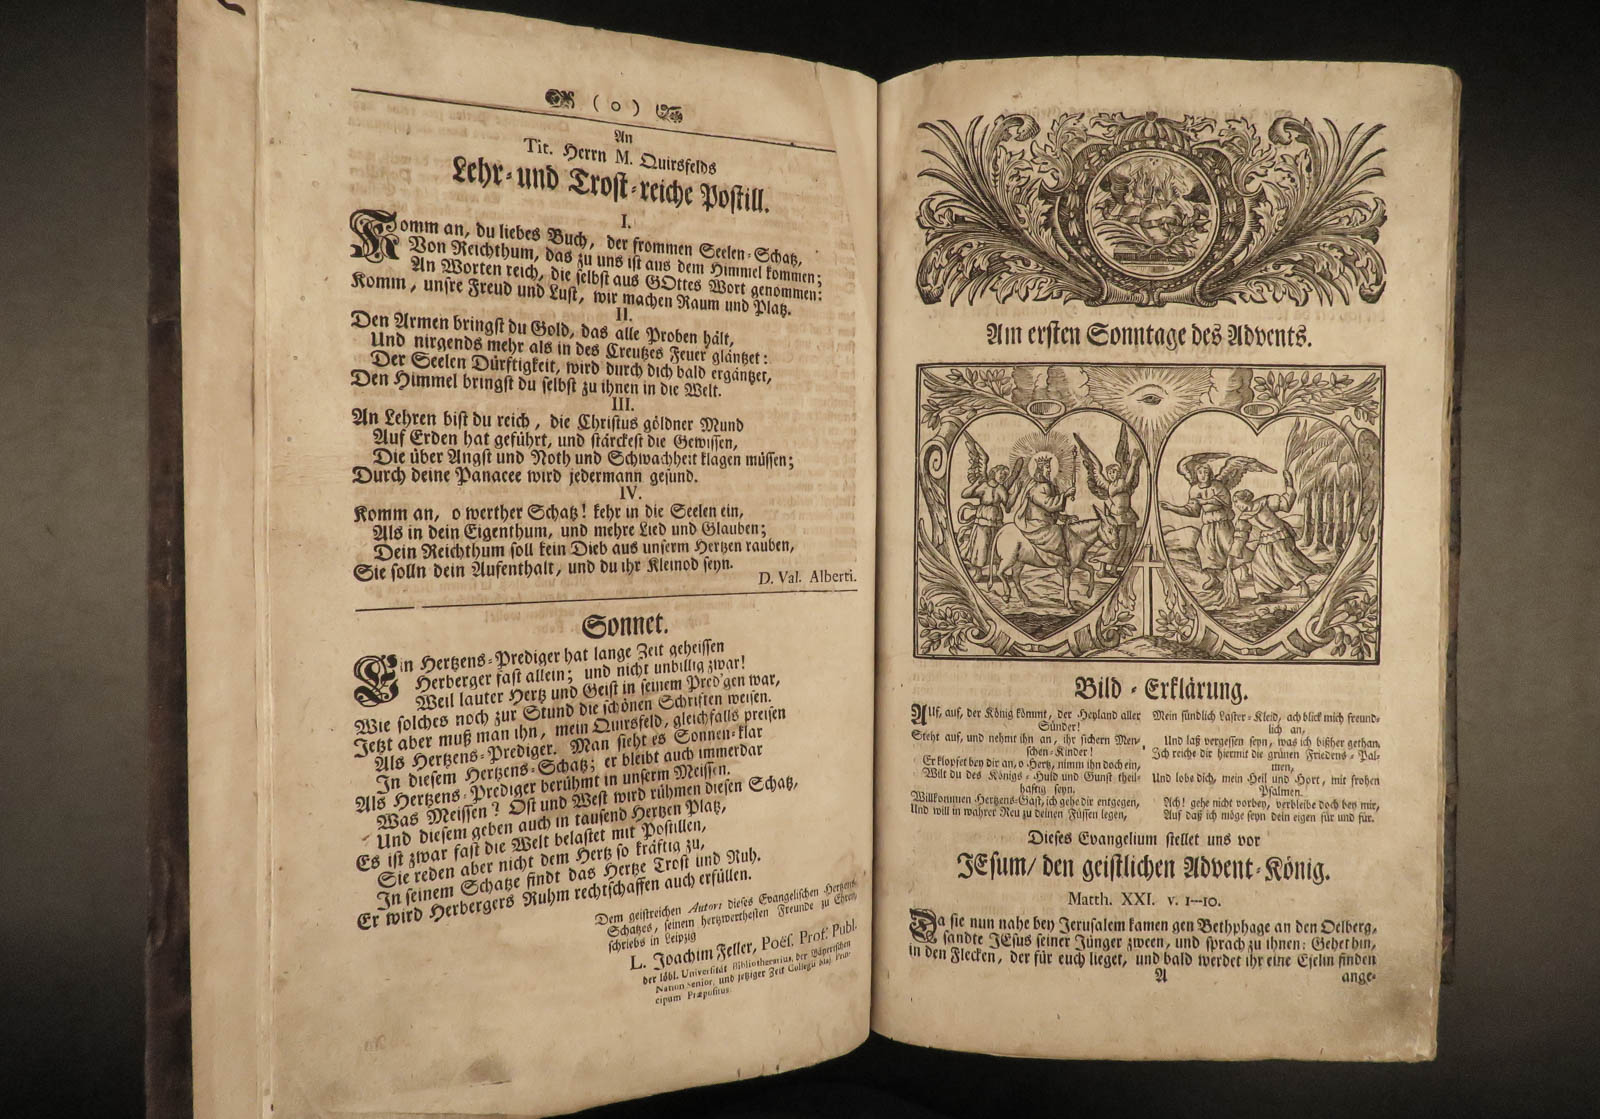 ( o )
An
Tit. Herrn M. Quirsfelds
Lehr-und Trost-reiche Postill.
I.
Komm an, du liebes Buch, der frommen Seelen-Schatz,
Von Reichthum, das zu uns ist aus dem Himmel kommen;
An Worten reich, die selbst aus GOttes Wort genommen:
Komm, unsre Freud und Lust, wir machen Raum und Platz.
II.
Den Armen bringst du Gold, das alle Proben hält,
Und nirgends mehr als in des Creutzes Feuer gläntzet:
Der Seelen Dürftigkeit, wird durch dich bald ergäntzet,
Den Himmel bringst du selbst zu ihnen in die Welt.
III.
An Lehren bist du reich, die Christus göldner Mund
Auf Erden hat geführt, und stärckest die Gewissen,
Die über Angst und Noth und Schwachheit klagen müssen;
Durch deine Panacee wird jedermann gesund.
IV.
Komm an, o werther Schatz! kehr in die Seelen ein,
Als in dein Eigenthum, und mehre Lied und Glauben;
Dein Reichthum soll kein Dieb aus unserm Hertzen rauben,
Sie solln dein Aufenthalt, und du ihr Kleinod seyn.
D. Val. Alberti.
Sonnet.
Ein Hertzens-Prediger hat lange Zeit geheissen
Herberger fast allein; und nicht unbillig zwar!
Weil lauter Hertz und Geist in seinem Pred'gen war,
Wie solches noch zur Stund die schönen Schriften weisen.
Jetzt aber muß man ihn, mein Quirsfeld, gleichfalls preisen
Als Hertzens-Prediger. Man sieht es Sonnen-klar
In diesem Hertzens-Schatz; er bleibt auch immerdar
Als Hertzens-Prediger berühmt in unserm Meissen.
Was Meissen? Ost und West wird rühmen diesen Schatz,
Und diesem geben auch in tausend Hertzen Platz,
Es ist zwar fast die Welt belastet mit Postillen,
Sie reden aber nicht dem Hertz so kräftig zu,
In seinem Schatze findt das Hertze Trost und Ruh.
Er wird Herbergers Ruhm rechtschaffen auch erfüllen.
Dem geistreichen Autori dieses Evangelischen Hertzens-
Schatzes, seinem hertzwerthesten Freunde zu Ehren,
schriebs in Leipzig
L. Joachim Feller, Poës. Prof. Publ.
der löbl. Universität Bibliothecarius, der Bäyerischen
Nation Senior, und jetziger Zeit Collegii
cipum Præpositus.
Am ersten Sonntage des Advents.
Bild-Erklärung.
AUf, auf, der König kömmt, der Heyland aller
Sünder!
Steht auf, und nehmt ihn an, ihr sichern Men-
schen-Kinder!
Er klopfet bey dir an, o Hertz, nimm ihn doch ein,
Wilt du des Königs-Huld und Gunst theil-
haftig seyn.
Willkommen Hertzens-Gast, ich gehe dir entgegen,
Und will in wahrer Reu zu deinen Füssen legen,
Mein sündlich Laster-Kleid, ach blick mich freund-
lich an,
Und laß vergessen seyn, was ich bißher gethan.
Ich reiche dir hiermit die grünen Friedens-Pal-
men,
Und lobe dich, mein Heil und Hort, mit frohen
Psalmen.
Ach! gehe nicht vorbey, verbleibe doch bey mir,
Auf daß ich möge seyn dein eigen für und für.
Dieses Evangelium stellet uns vor
JEsum/ den geistlichen Advent-König.
Matth. XXI. v. 1—10.
Da sie nun nahe bey Jerusalem kamen gen Bethphage an den Oelberg,
sandte JEsus seiner Jünger zween, und sprach zu ihnen: Gehet hin,
in den Flecken, der für euch lieget, und bald werdet ihr eine Eselin finden
A
ange-